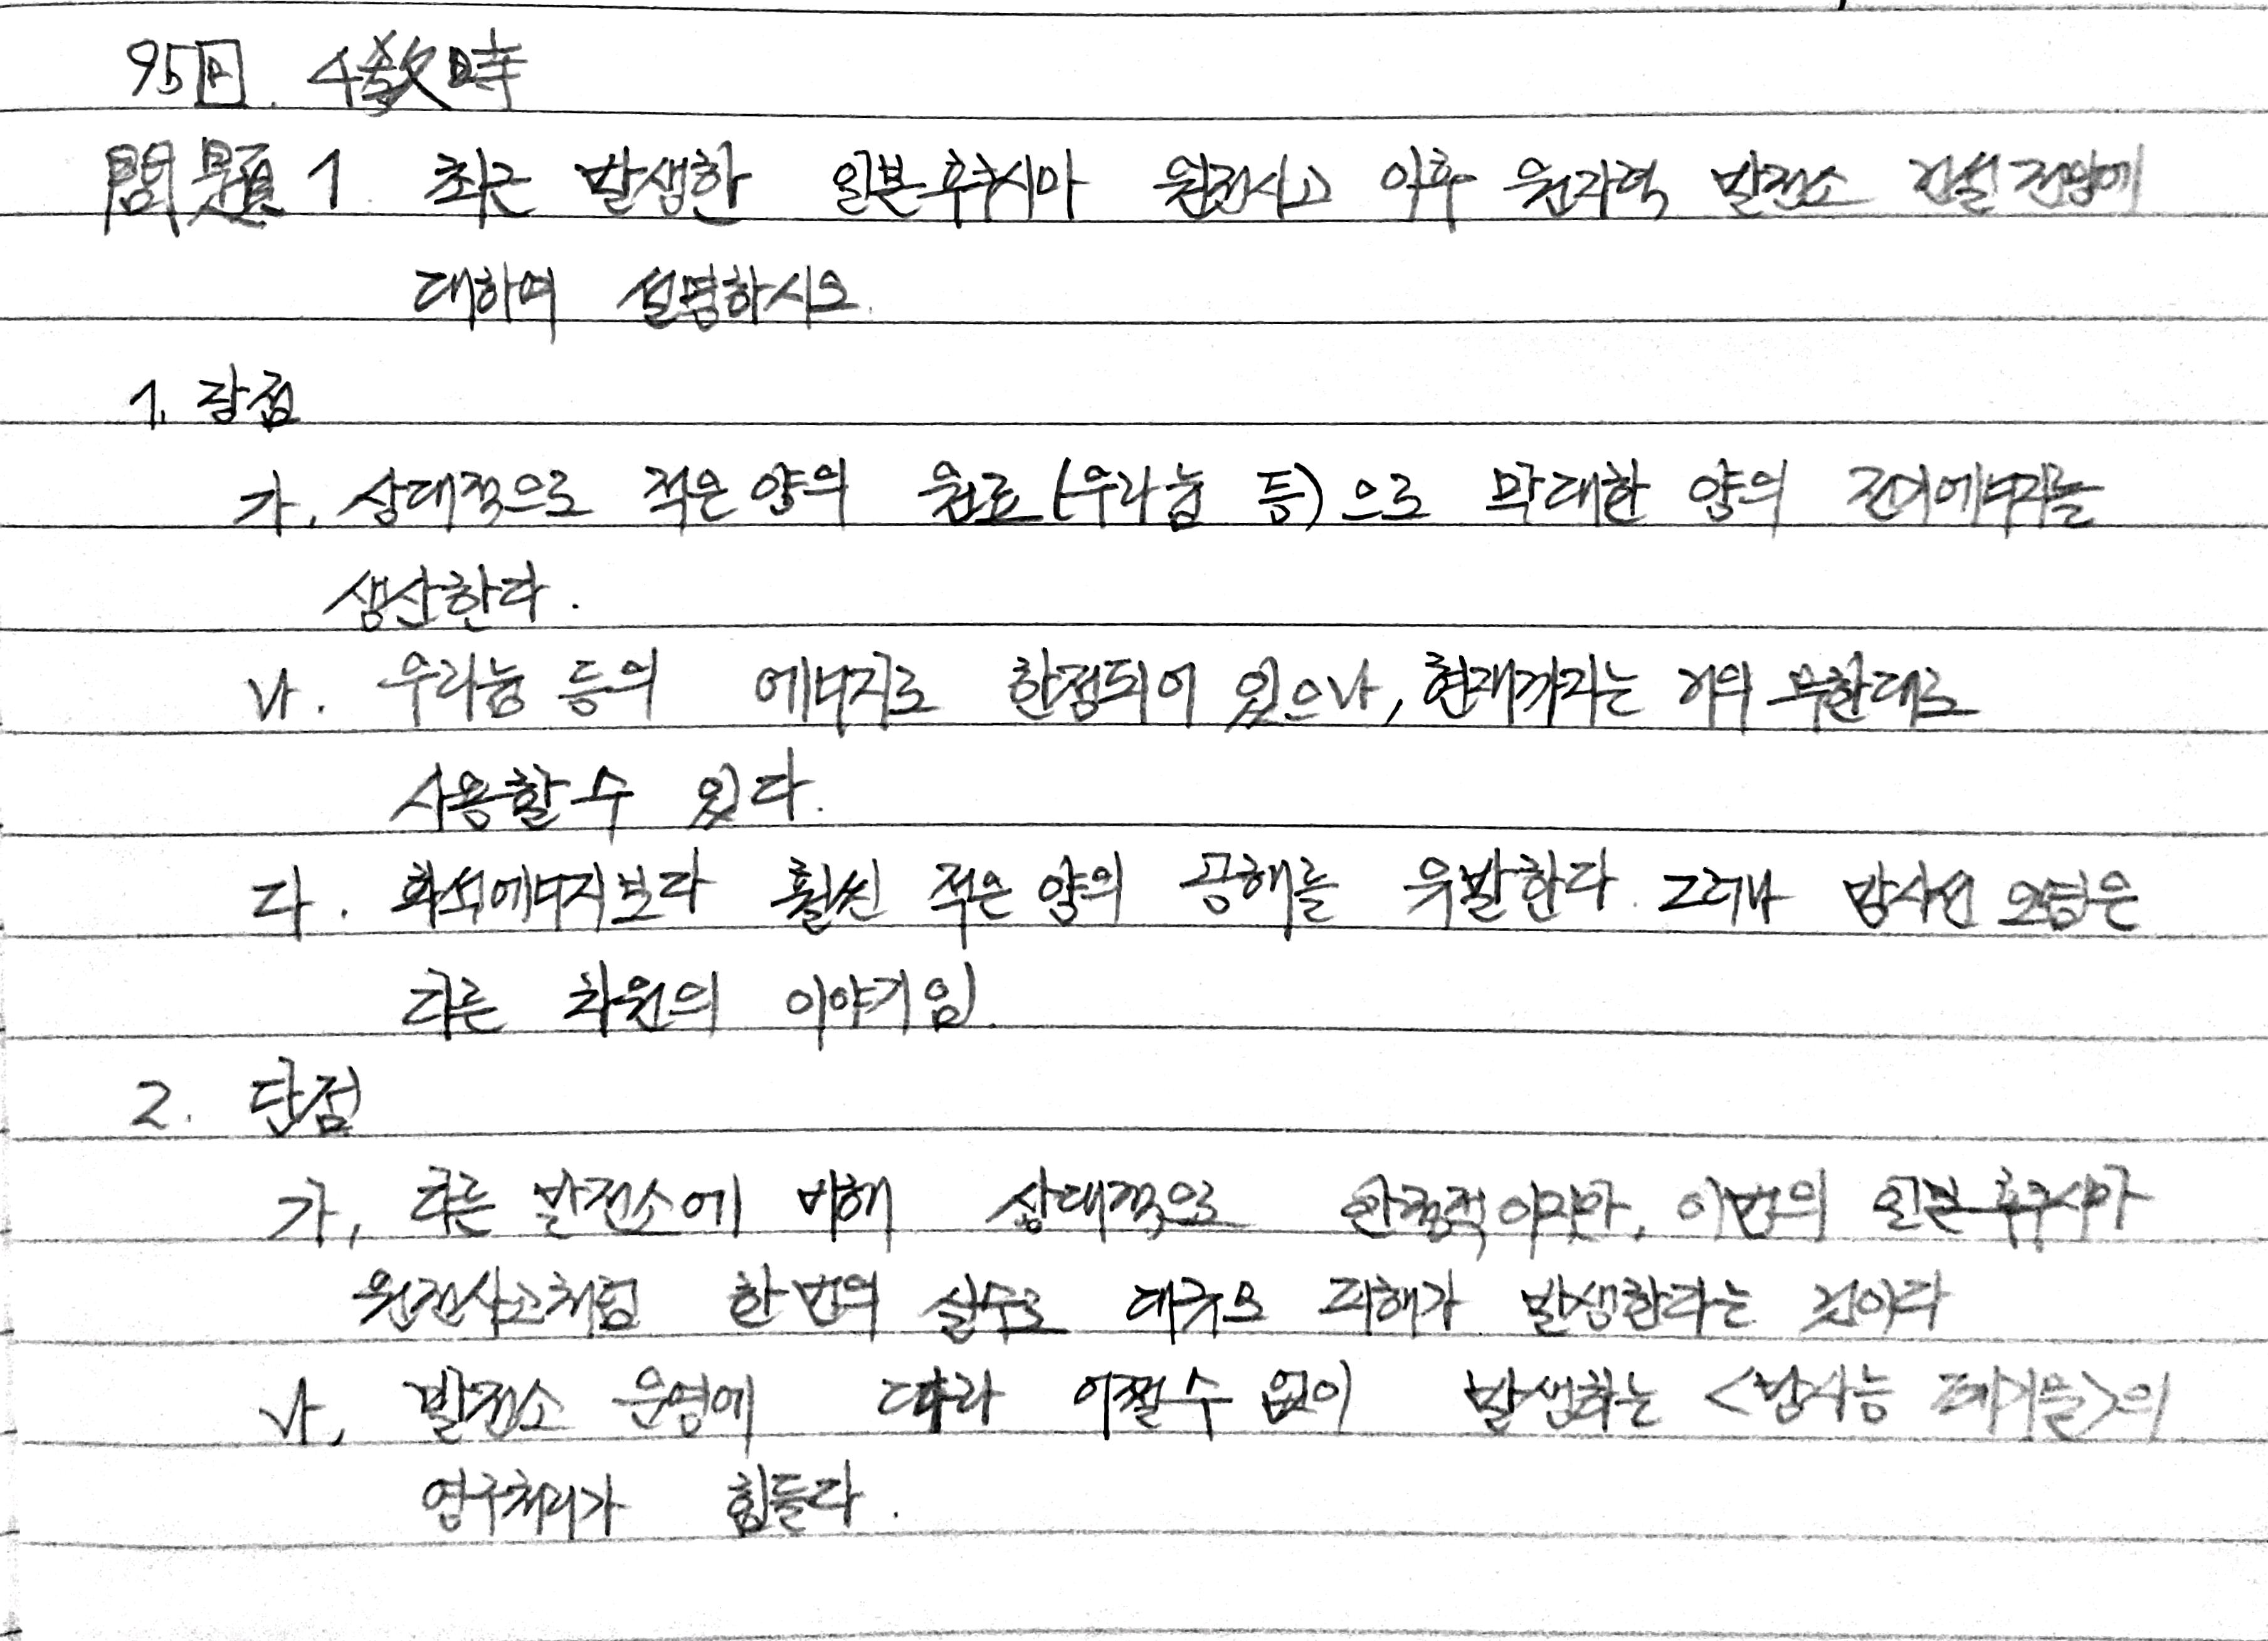 95回. 4敎時
問題 1 최근 발생한 일본후쿠시마 원전사고 이후 원자력 발전소 건설전망에
대하여 설명하시오.
1. 장점
가. 상대적으로 적은 양의 원료(우라늄 등)으로 막대한 양의 전기에너지를
생산한다.
나. 우라늄 등의 에너지로 한정되어 있으나, 현재까지는 거의 무한대로
사용할 수 있다.
다. 화석에너지보다 훨씬 적은 양의 공해를 유발한다. 그러나 방사선 오염은
다른 차원의 이야기임.
2. 단점
가. 다른 발전소에 비해 상대적으로 안정적이지만, 이번의 일본 후쿠시마
원전사고처럼 한 번의 실수로 대규모 피해가 발생한다는 것이다
나. 발전소 운영에 따라 어쩔 수 없이 발생하는 <방사능 폐기물>의
영구처리가 힘들다.